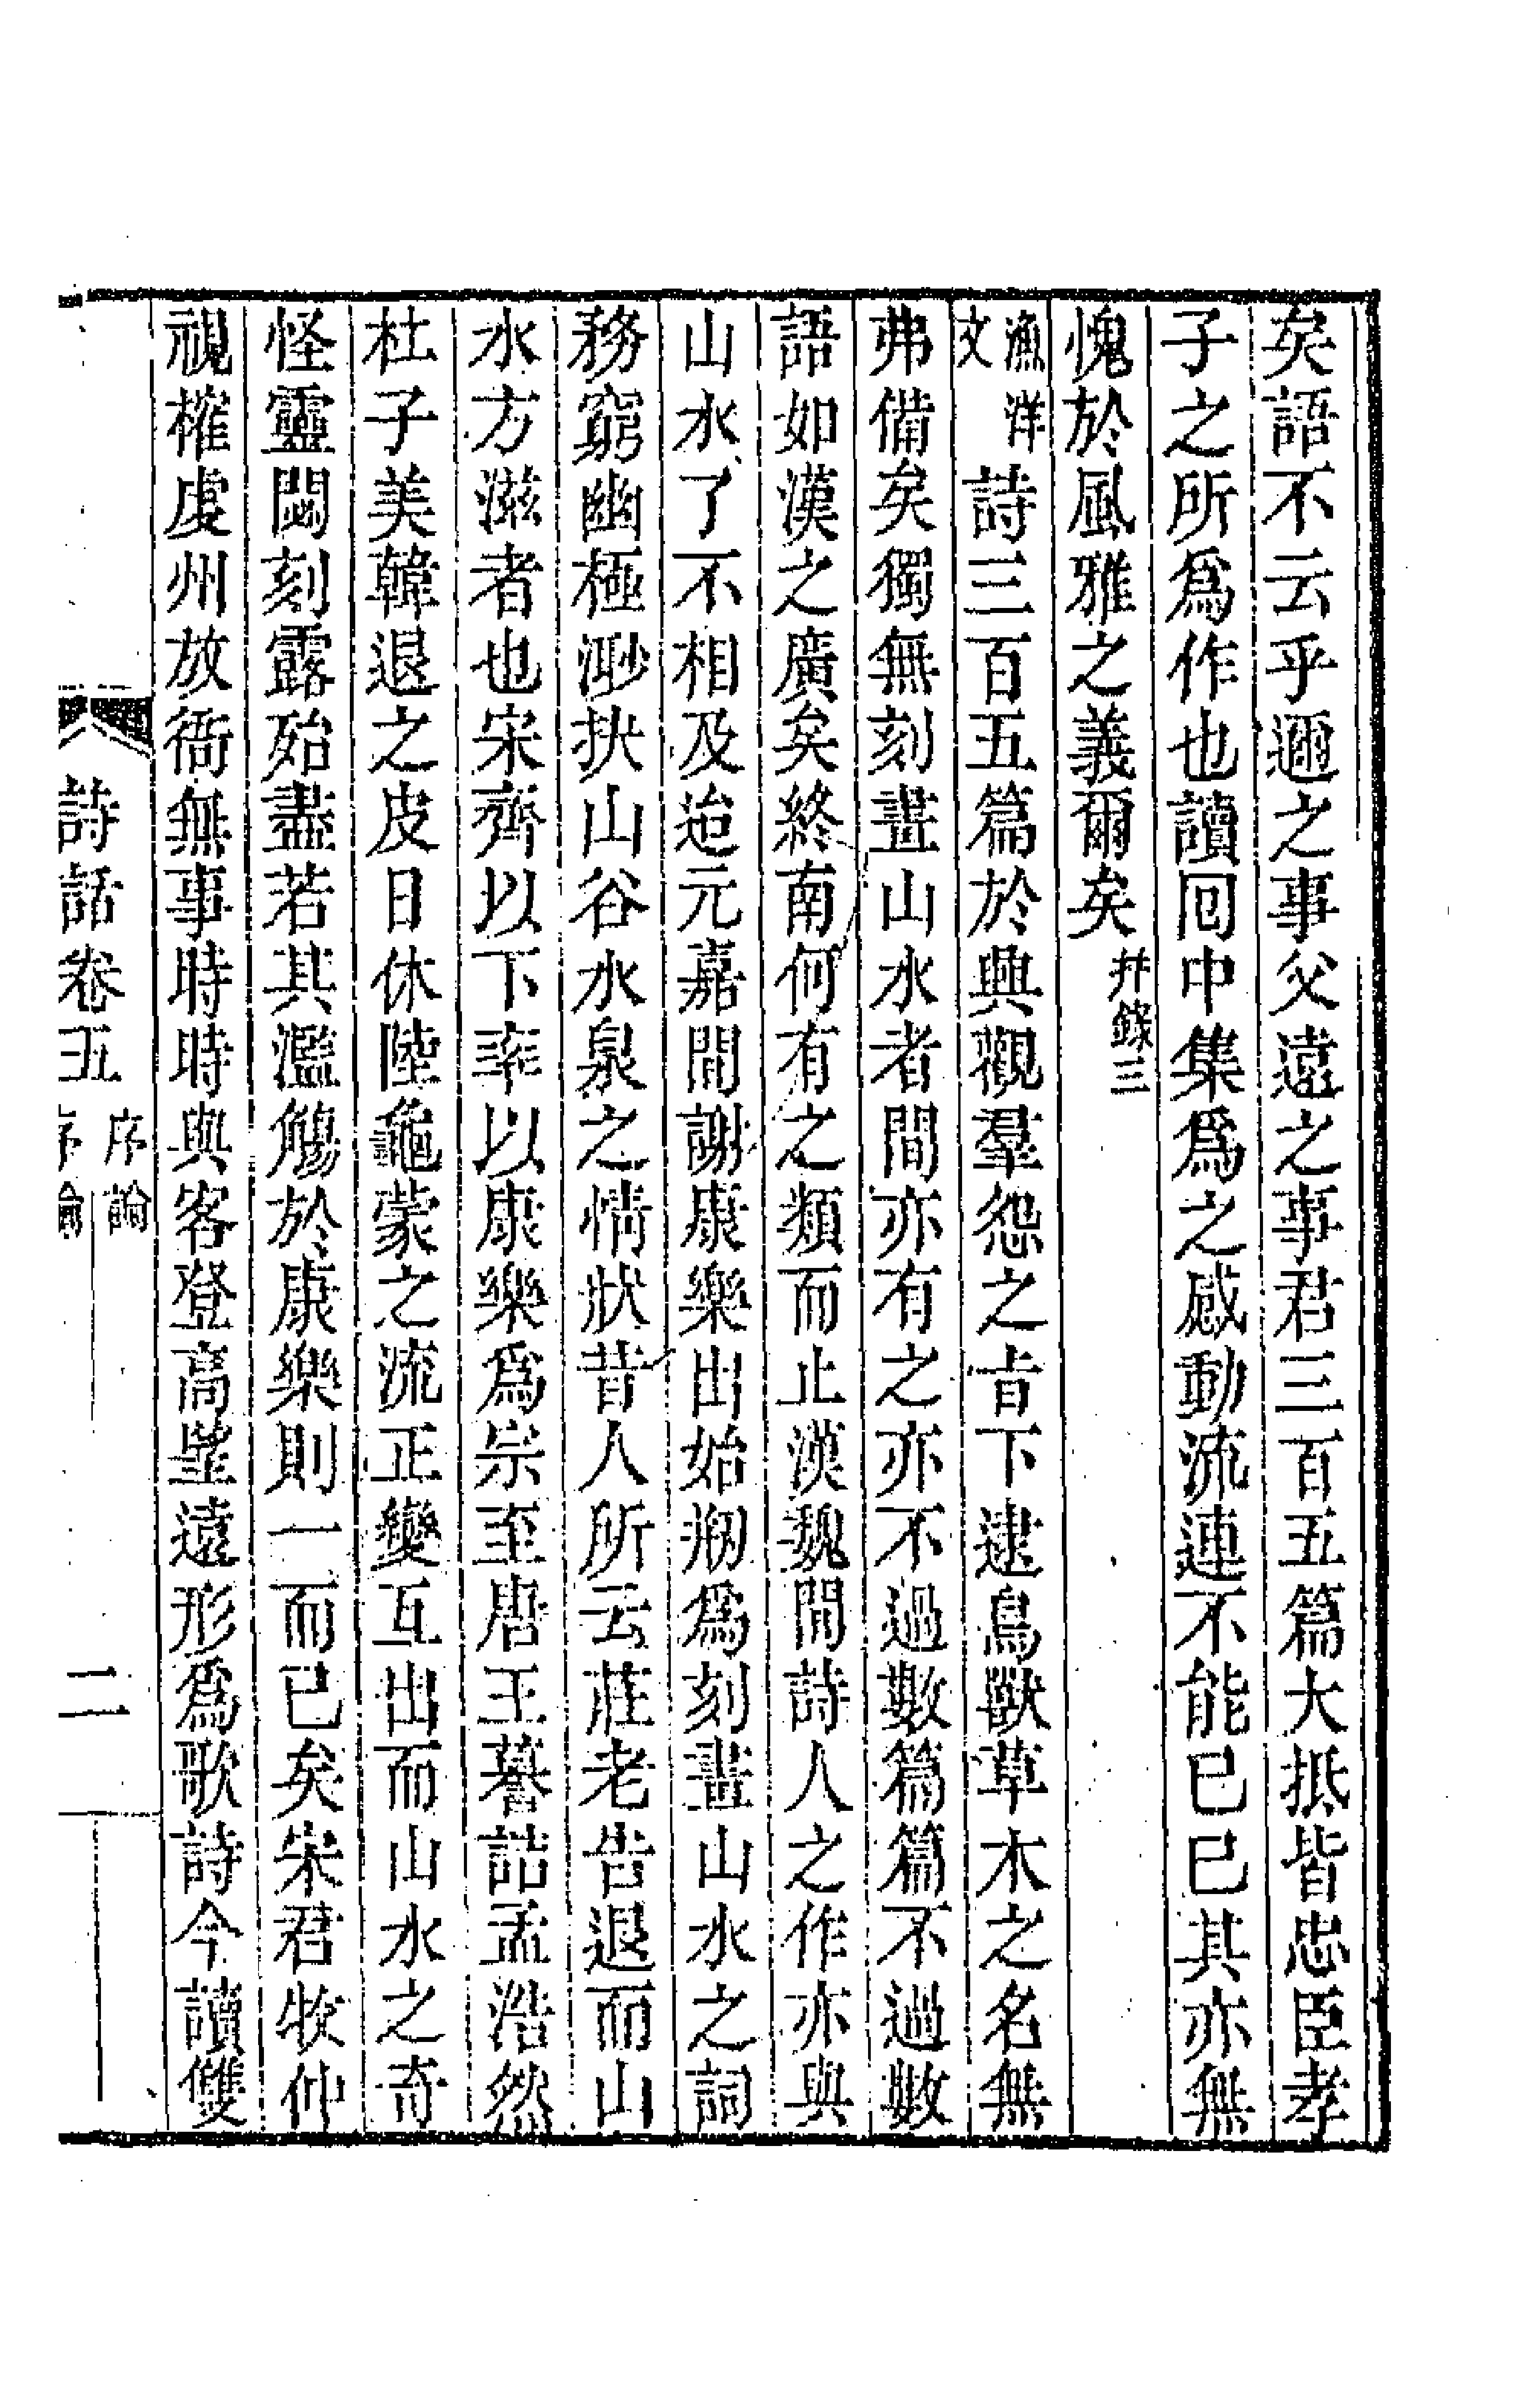 矣語不云乎邇之事父遠之事君三百五篇大抵皆忠臣孝
子之所爲作也讀囘中集爲之感動流連不能已已其亦無
愧於風雅之義爾矣 幷錄三
漁洋文 詩三百五篇於興觀羣怨之旨下逮鳥獸草木之名無
弗備矣獨無刻畫山水者間亦有之亦不過數篇篇不過數
語如漢之廣矣終南何有之類而止漢魏間詩人之作亦與
山水了不相及迨元嘉間謝康樂出始剏爲刻畫山水之詞
務窮幽極渺抉山谷水泉之情狀昔人所云莊老告退而山
水方滋者也宋齊以下率以康樂爲宗至唐王摹詰孟浩然
杜子美韓退之皮日休陸龜蒙之流正變互出而山水之奇
怪靈閟刻露殆盡若其濫觴於康樂則一而已矣宋君牧仲
視榷虔州放衙無事時時與客登高望遠形爲歌詩今讀雙
詩話卷五 序論 二